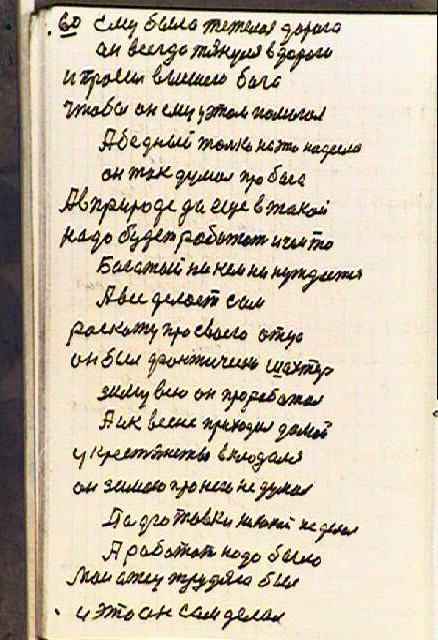 60 ему была тежолоя дорога
он всегдо тянулся вдорого
и просил вышнего бога
чтобы он ему у этом помогал
Абедный толко на то надеелся
он так думал про бога
Авприроде да еще втакой
надо будет работат и чимто
Багатый ни чем ни нуждается
Авсе делает сам
роскожу просвоего отца
он был шахтер
зиму всю он проработал
Аик весне приходил домой
укрестянство вклюдался
он зимою про него не думал
Падготовки никакой не делал
Аработат надо было
Мой отец трудяга был
и это он сам делал